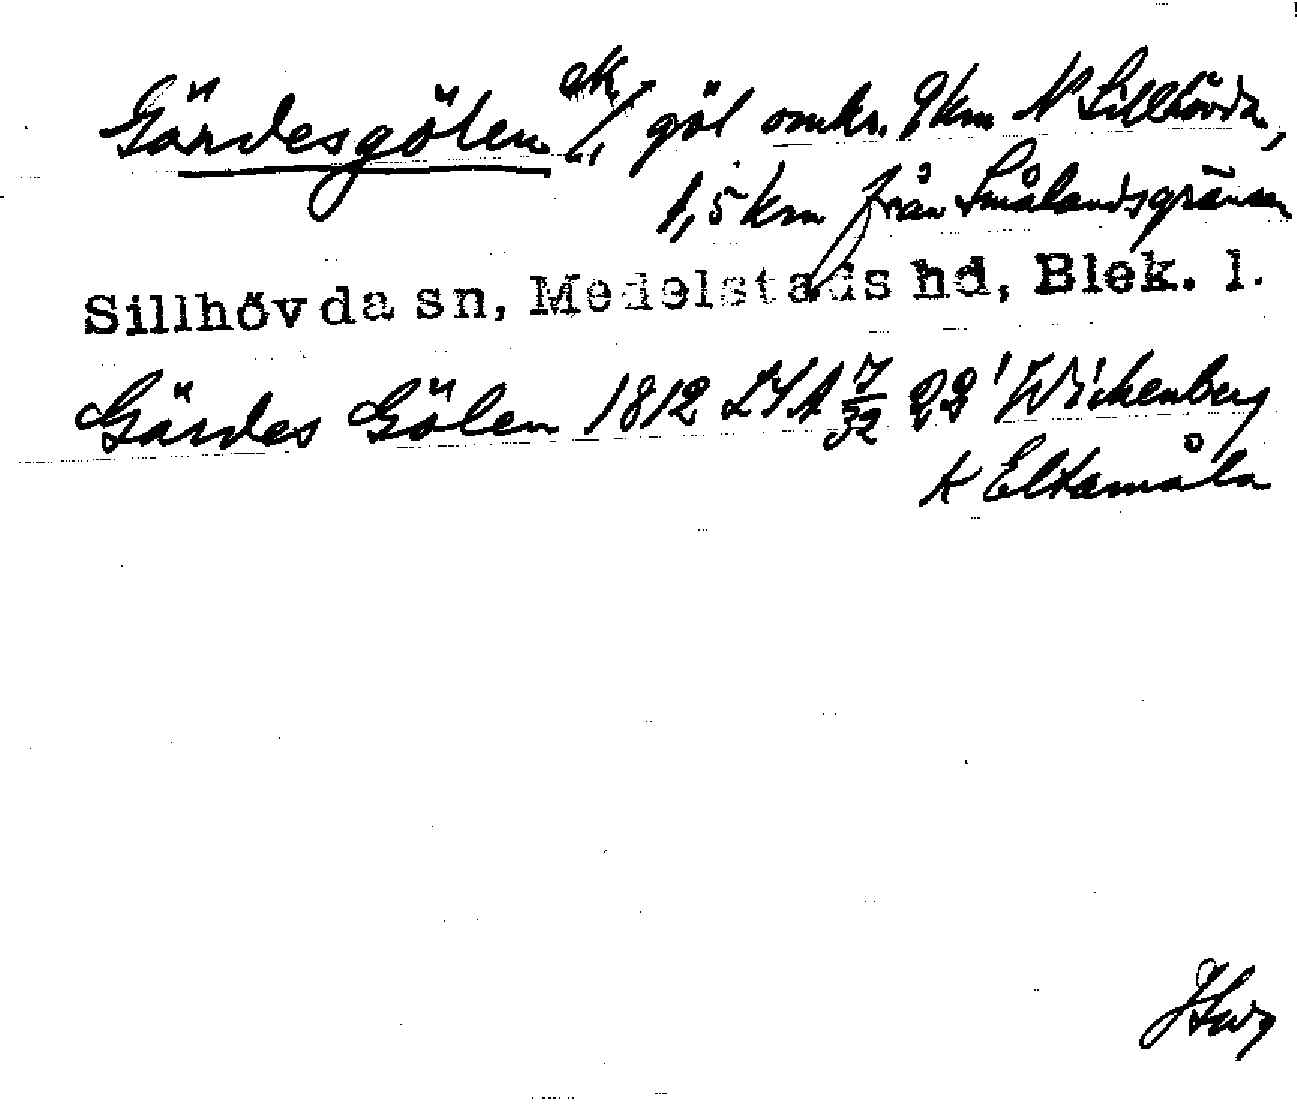 Gärdesgölen ek/ göl omkr. 9 km N Sillhövda,
1,5 km från Smålandsgränsen
Sillhövda sn, Medelstads hd, Blek. l.
Gärdes Gölen 1812 LSA 7/32 Wickenberg
k Eltamåla